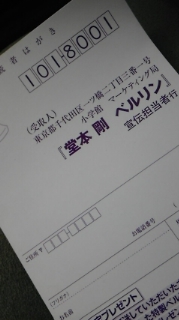 者はがき
1018001
(受取人)
東京都千代田区一ツ橋二丁目三番一号
小学館 マーケティング局
『堂本 剛 ベルリン』
宣伝担当者行
ご住所 〒
お電話番号
(フリガナ)
お名前
プレゼント